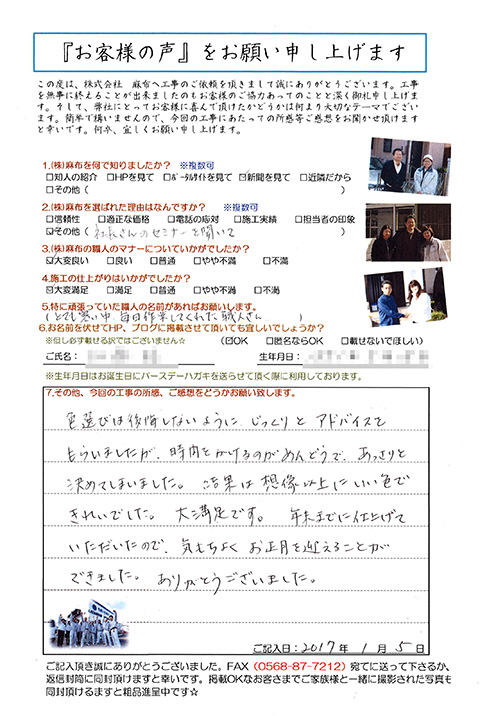 『お客様の声』をお願い申し上げます
この度は、株式会社　麻布へ工事のご依頼を頂きまして誠にありがとうございます。工事
を無事に終えることが出来ましたのもお客様のご協力あってのことと深く御礼申し上げま
す。そして、弊社にとってお客様に喜んで頂けたかどうかは何より大切なテーマでござい
ます。簡単で構いませんので、今回の工事にあたっての所感等ご感想をお聞かせ頂けます
と幸いです。何卒、宜しくお願い申し上げます。
1.(株)麻布を何で知りましたか？　※複数可
□知人の紹介　□HPを見て　□ポータルサイトを見て　☑新聞を見て　□近隣だから
□その他（　　　　　　　　　　　　　　　　）
2.(株)麻布を選ばれた理由はなんですか？　※複数可
□信頼性　□適正な価格　□電話の応対　□施工実績　□担当者の印象
☑その他（社長さんのセミナーを聞いて　　　　）
3.(株)麻布の職人のマナーについていかがでしたか？
☑大変良い　□良い　□普通　□やや不満　□不満
4.施工の仕上がりはいかがでしたか？
☑大変満足　□満足　□普通　□やや不満　□不満
5.特に頑張っていた職人の名前があればお願いします。
（とても寒い中、毎日作業してくれた職人さん　　）
6.お名前を伏せてHP、ブログに掲載させて頂いても宜しいでしょうか？
※但し必ず載せる訳ではございません☆　（☑OK　□匿名ならOK　□載せないでほしい）
ご氏名：　　　　生年月日：
※生年月日はお誕生日にバースデーハガキを送らせて頂く際に利用しております。
7.その他、今回の工事の所感、ご感想をどうかお願い致します。
色選びは後悔しないように、じっくりと アドバイスを
もらいましたが、時間をかけるのがめんどうで、あっさりと
決めてしまいました。結果は想像以上にいい色で
きれいでした。大満足です。年末までに仕上げて
いただいたので、気もちよく お正月を迎えることが
できました。ありがとうございました。
ご記入日：2017年 1月 5日
ご記入頂き誠にありがとうございました。FAX（0568-87-7212）宛てに送って下さるか、
返信封筒に同封頂けますと幸いです。掲載OKなお客さまでご家族様と一緒に撮影された写真も
同封頂けるますと粗品進呈中です☆